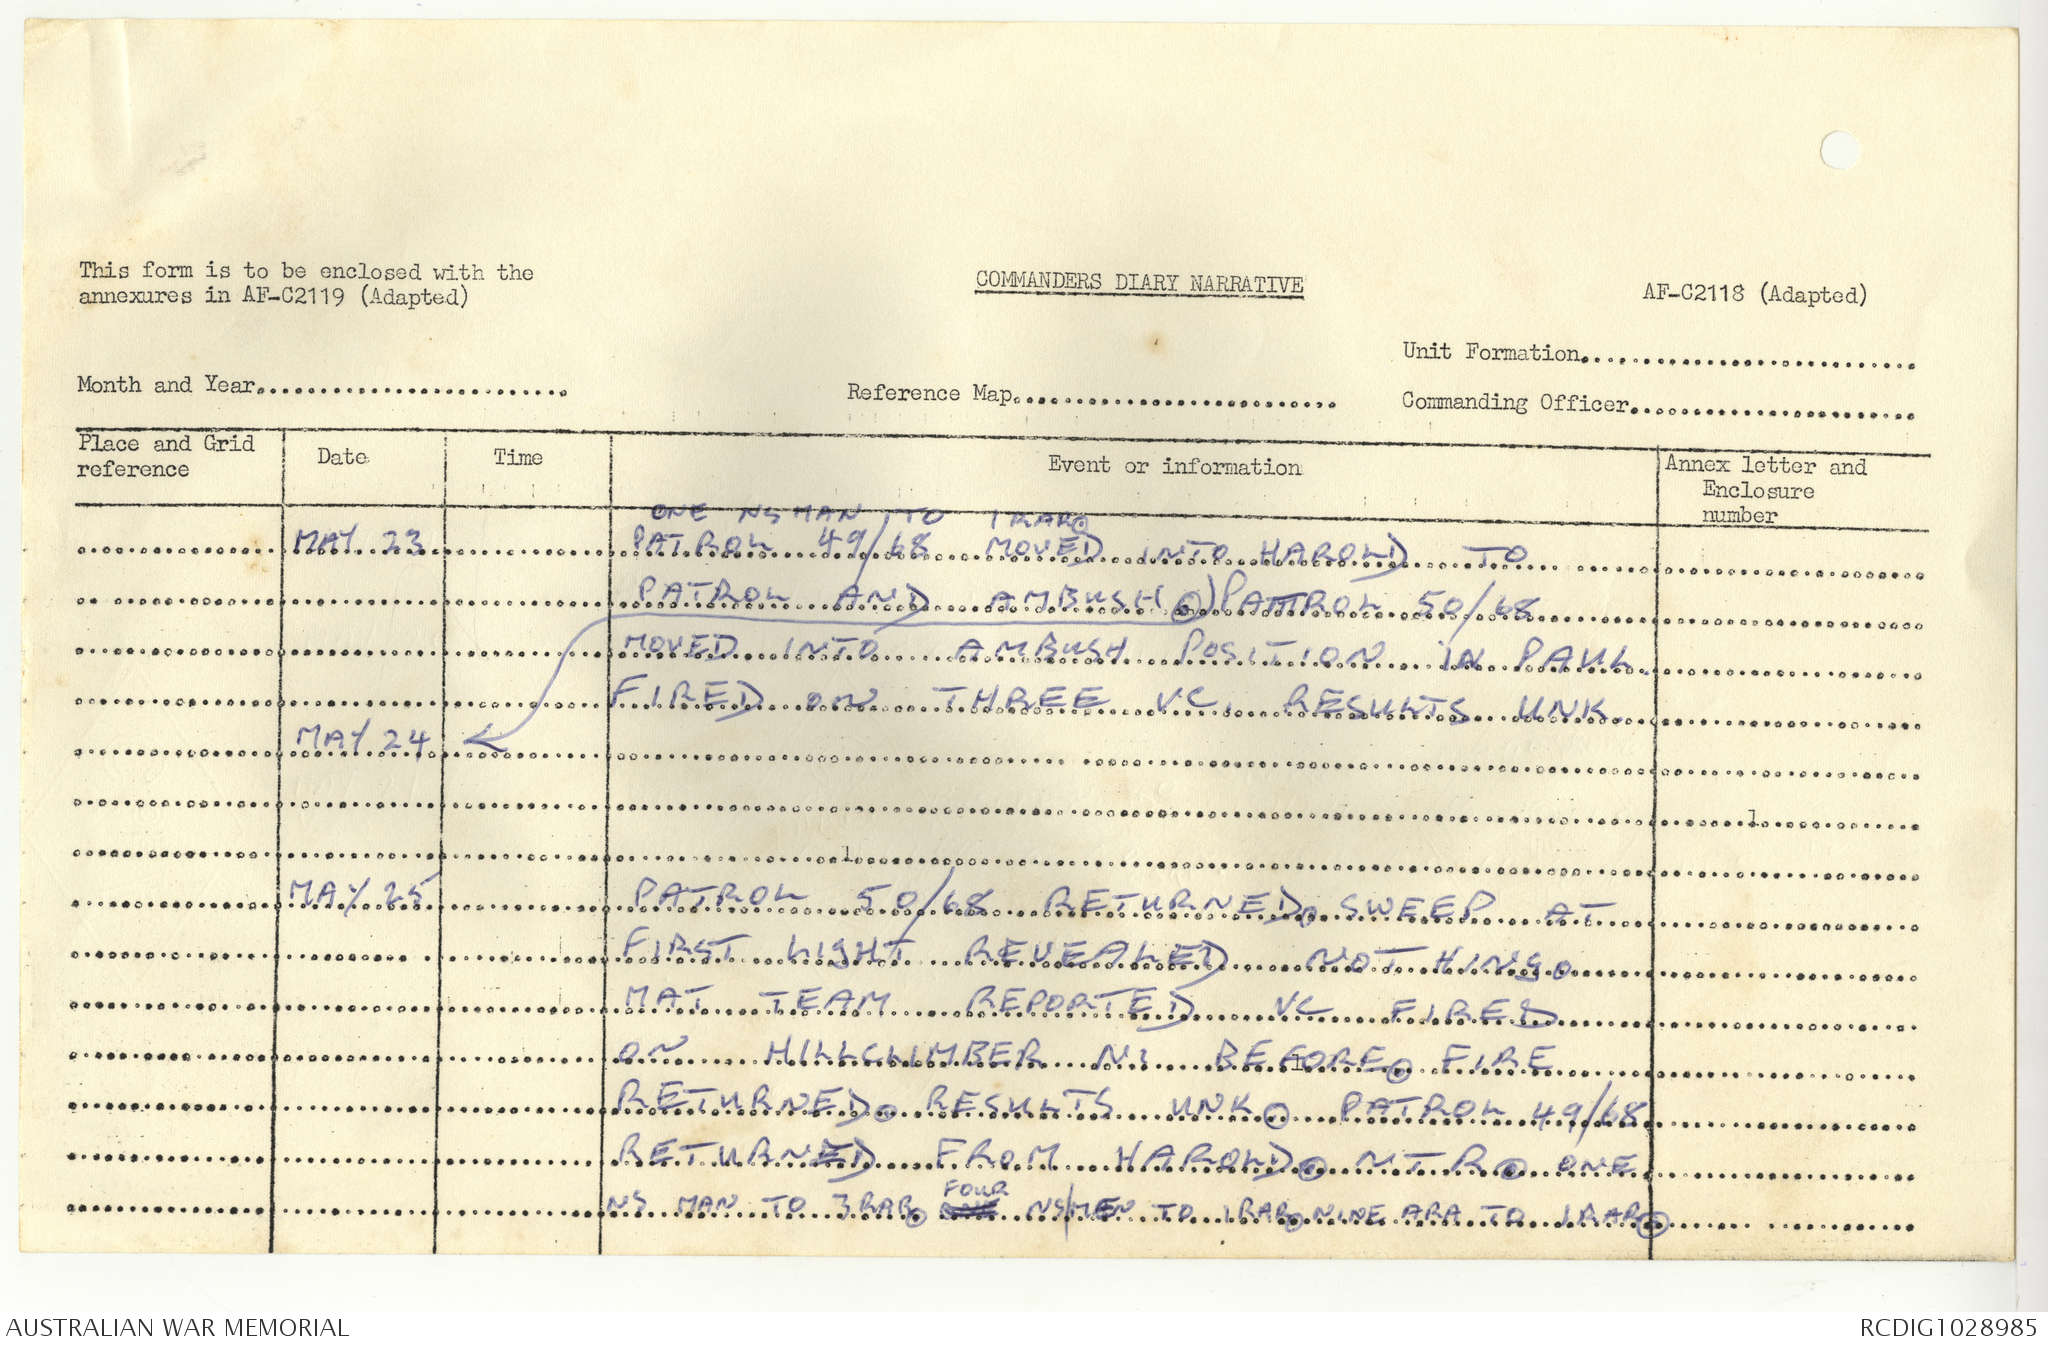 This form is to be enclosed with the
annexures in AF-C2119 (Adapted)
COMMANDERS DIARY NARRATIVE
AF-C2118 (Adapted)
Unit Formation
Month and Year
Reference Map
Commanding Officer
Place and Grid reference
Date
Time
Event or information
Annex letter and Enclosure number
ONE NSMAN TO 1RAR.
MAY 23 PATROL 49/68 MOVED INTO HAROLD TO
PATROL AND AMBUSH(.) PATROL 50/68
MOVED INTO AMBUSH POSITION IN PAUL.
FIRED ON THREE VC. RESULTS UNK.
MAY 24
MAY 25 PATROL 50/68 RETURNED. SWEEP AT
FIRST LIGHT REVEALED NOTHING.
MAT TEAM REPORTED VC FIRED
ON HILLCLIMBER NI BEFORE. FIRE
RETURNED. RESULTS UNK. PATROL 49/68
RETURNED FROM HAROLD. NTR. ONE
NS MAN TO 3RAR. FOUR NS/MEN TO 1RAR. NINE ARA TO 1RAR.
AUSTRALIAN WAR MEMORIAL
RCDIG1028985